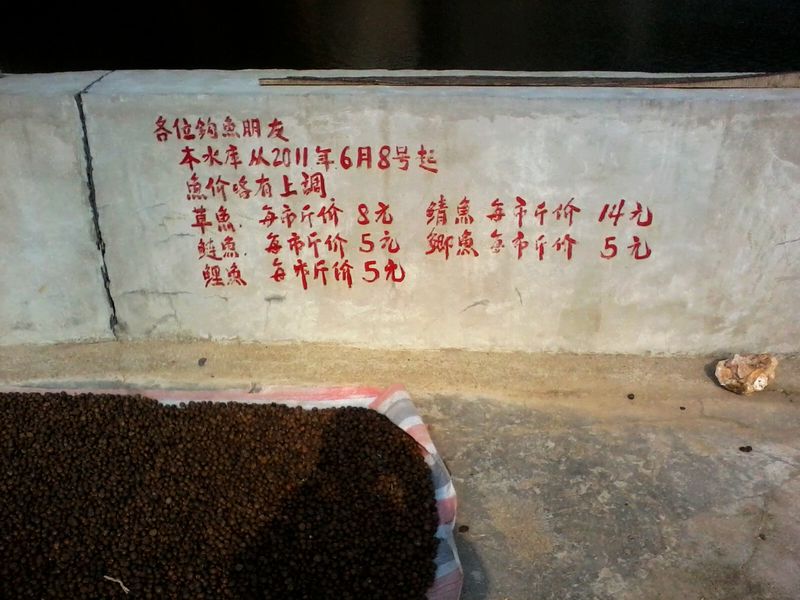 各位钓魚朋友
本水库从2011年6月8号起
魚价略有上調
草魚. 每市斤价 8元 鯖魚 每市斤价 14元
鲢魚. 每市斤价 5元 鄉魚 每市斤价 5元
鯉魚 每市斤价 5元